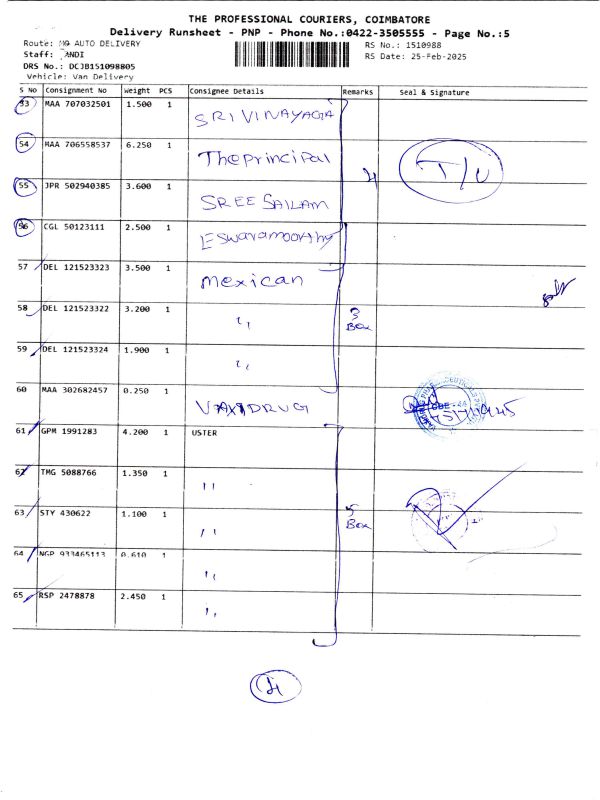 THE PROFESSIONAL COURIERS, COIMBATORE
Delivery Runsheet - PNP - Phone No.:0422-3505555 - Page No.:5
Route: MQ AUTO DELIVERY RS No.: 1510988
Staff: RS Date: 25-Feb-2025
DRS No.: DCJB151098805
Vehicle: Van Delivery
S No Consignment No Weight PCS Consignee Details Remarks Seal & Signature
53 MAA 707032501 1.500 1 SRI VINAYAGA
54 MAA 706558537 6.250 1 The principal
4 T/U
55 JPR 502940385 3.600 1 SREE SAILAM
56 CGL 50123111 2.500 1 Eswaramoorthy
57 DEL 121523323 3.500 1 mexican
58 DEL 121523322 3.200 1 " 3 Box
59 DEL 121523324 1.900 1 "
60 MAA 302682457 0.250 1
61 GPM 1991283 4.200 1 USTER
62 TMG 5088766 1.350 1 "
63 STY 430622 1.100 1 " 5 Box
64 NGP 933465113 0.610 1 "
65 RSP 2478878 2.450 1 "
4